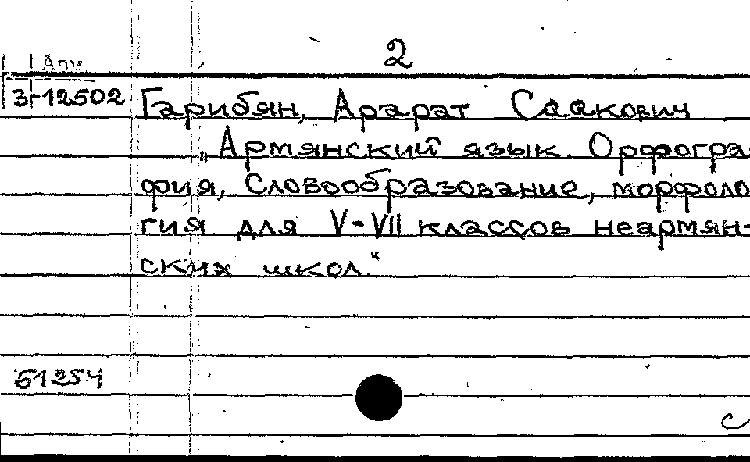 2
Арм.
3-12502 Гарибян, Арарат Саакович
„Армянский язык. Орфогра-
фия, словообразование, морфоло
гия для V-VII классов неармян-
ских школ."
51254